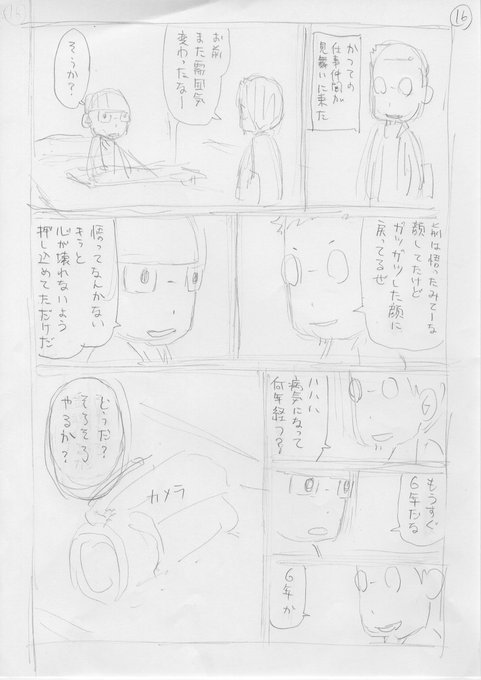 16
かつての
仕事仲間が
見舞いに来た
お前
また雰囲気
変わったなー
そうか?
前は悟ったみてーな
顔してたけど
ガツガツした顔に
戻ってるぜ
悟ってなんかない
きっと
心が壊れないよう
押し込めてただけだ
ハハハ
病気になって
何年経つ?
もうすぐ
6年だな
6年か
どうだ?
そろそろ
やるか?
カメラ